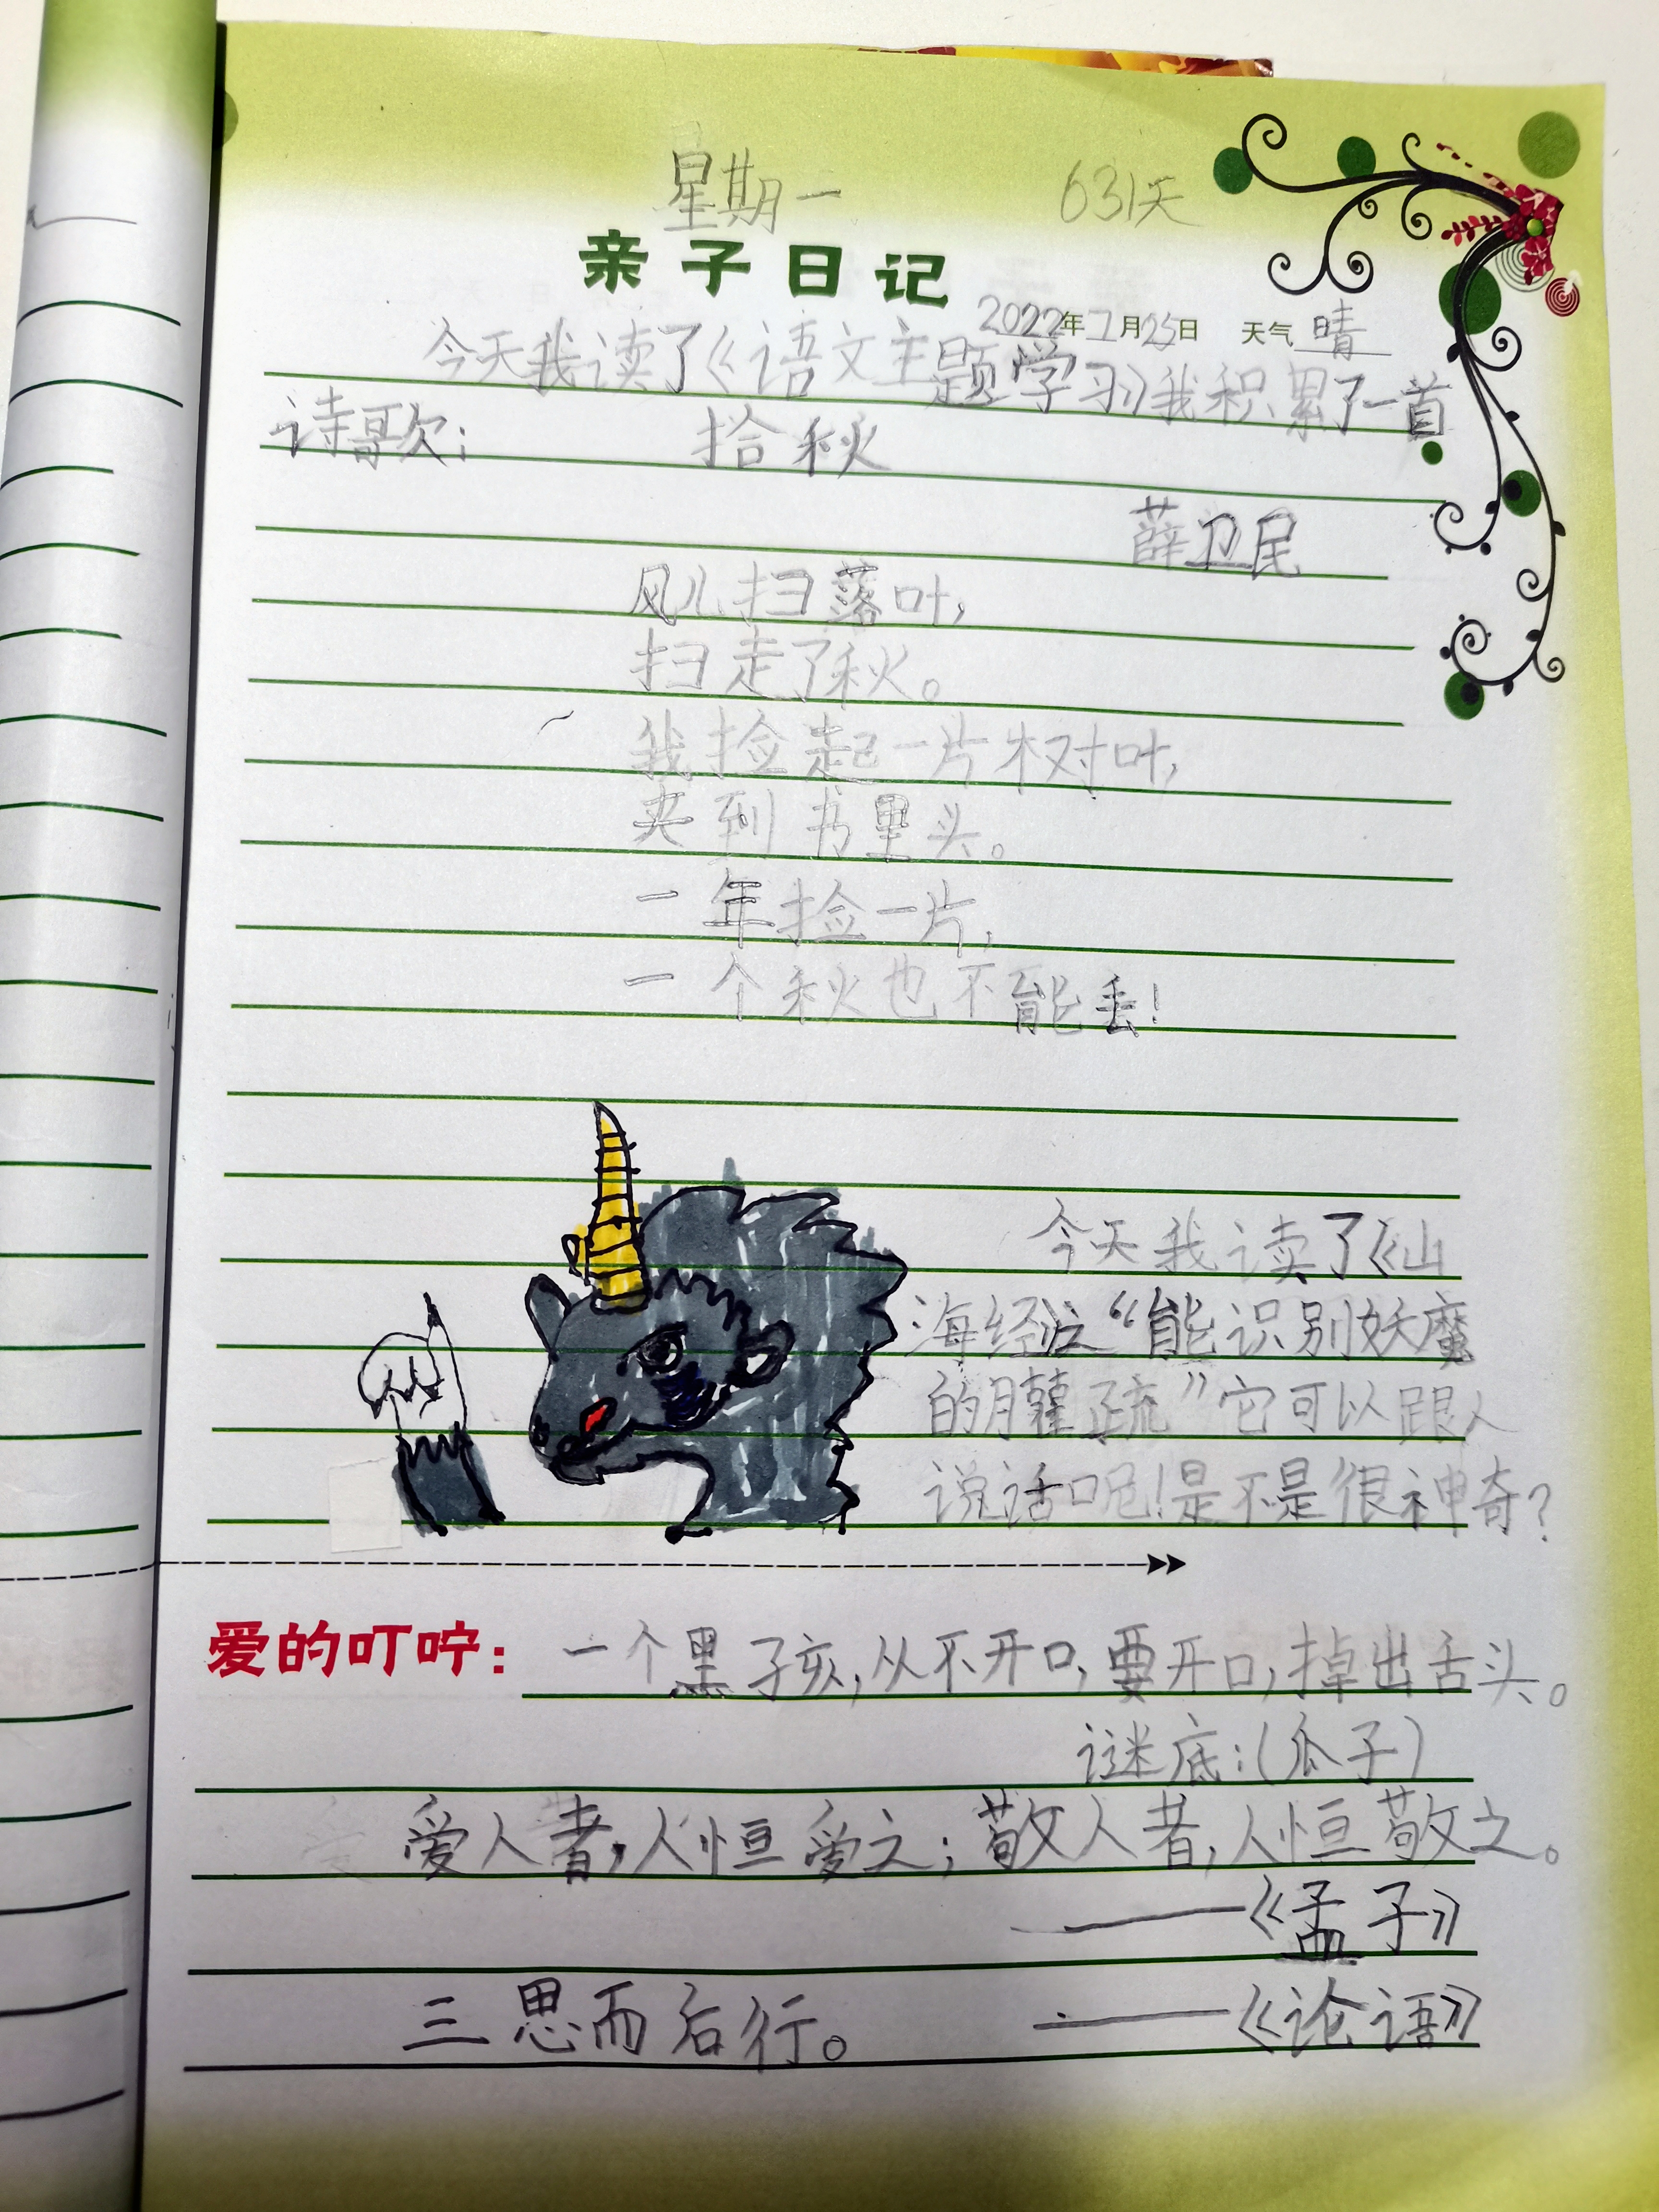 星期一 631天
亲子日记
2022年7月25日 天气 晴
今天我读了《语文主题学习》我积累了一首
诗歌: 拾秋
薛卫民
风儿扫落叶,
扫走了秋。
我捡起一片树叶,
夹到书里头。
一年捡一片,
一个秋也不能丢!
今天我读了《山
海经》之“能识别妖魔
的 疏”它可以跟人
说话呢!是不是很神奇?
爱的叮咛: 一个黑子孩,从不开口,要开口,掉出舌头。
谜底:(瓜子)
爱人者,人恒爱之;敬人者,人恒敬之。
——《孟子》
三思而后行。 ——《论语》